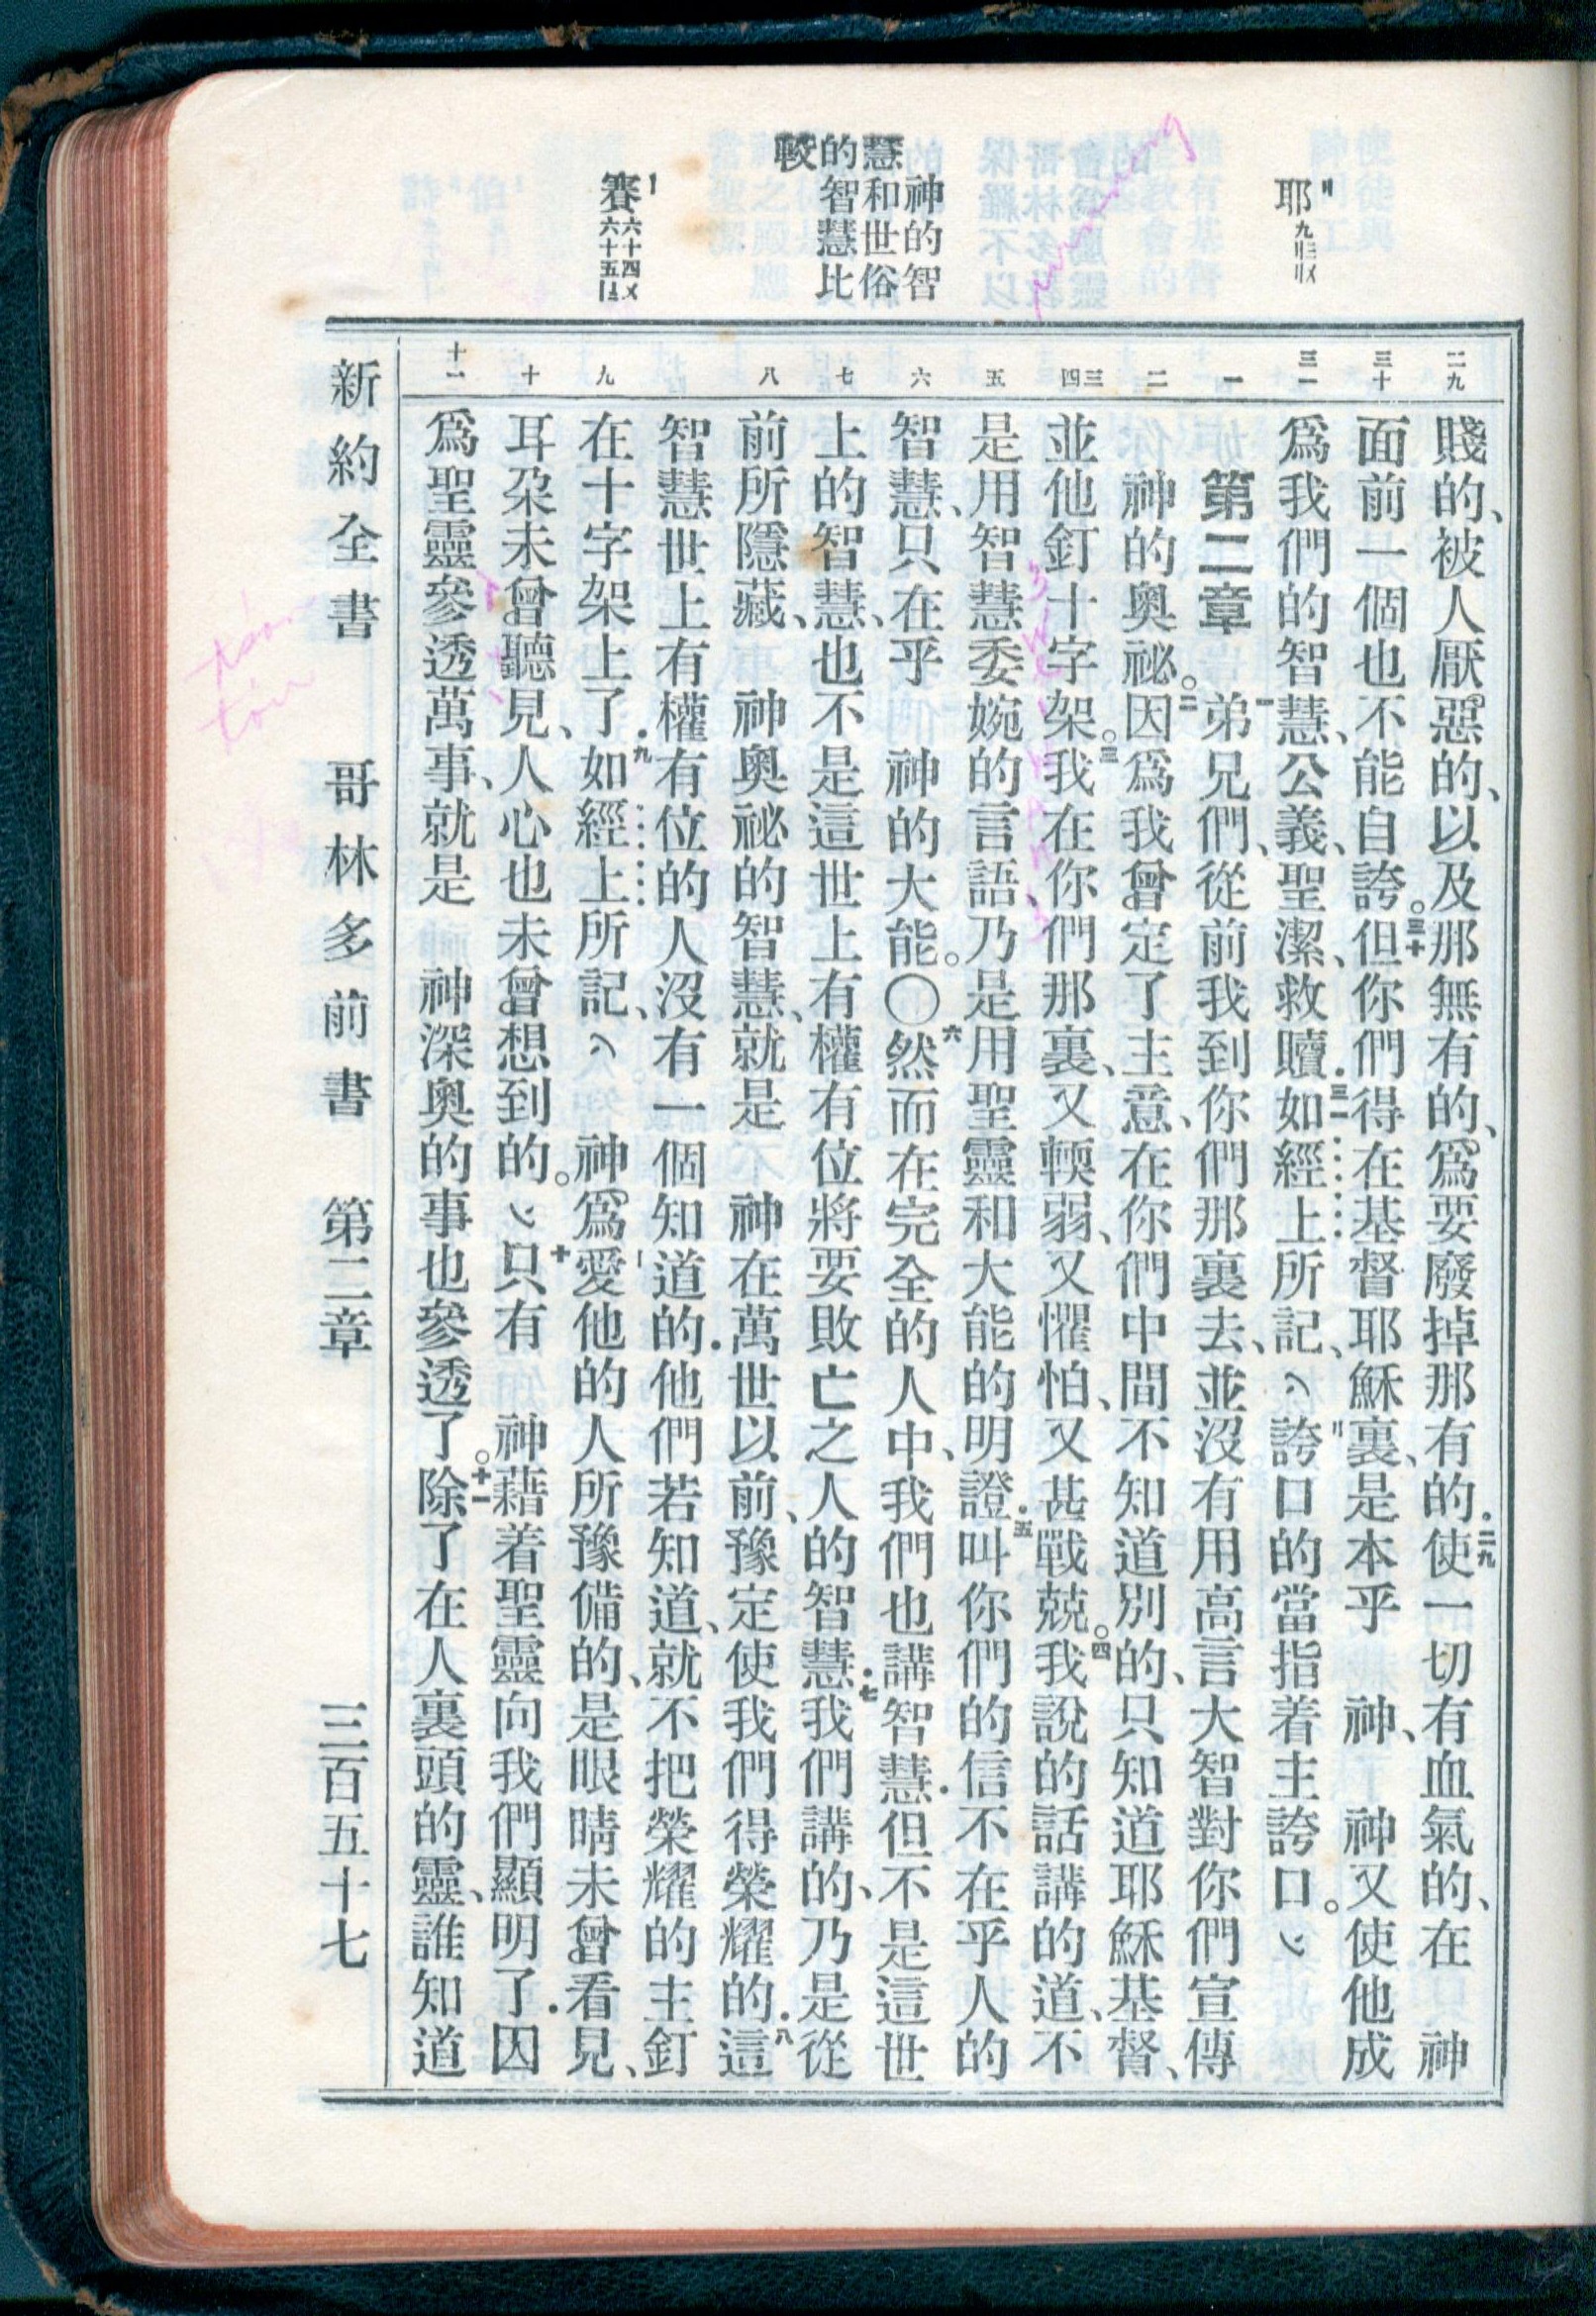 耶九
神的智
慧和世俗
的智慧比
較
賽六十四
六十五
二九
三十
三一
一
二
三
四
五
六
七
八
九
十
十一
賤的、被人厭惡的、以及那無有的、爲要廢掉那有的．二九使一切有血氣的、在　神
面前一個也不能自誇。三十但你們得在基督耶穌裏、是本乎　神、　神又使他成
爲我們的智慧、公義、聖潔、救贖．三一如經上所記、〈誇口的當指着主誇口。〉
第二章　一弟兄們、從前我到你們那裏去、並沒有用高言大智對你們宣傳
神的奧祕。二因爲我曾定了主意、在你們中間不知道別的、只知道耶穌基督、
並他釘十字架。三我在你們那裏、又輭弱、又懼怕、又甚戰兢。四我說的話講的道、不
是用智慧委婉的言語、乃是用聖靈和大能的明證．五叫你們的信不在乎人的
智慧、只在乎　神的大能。〇六然而在完全的人中、我們也講智慧．但不是這世
上的智慧、也不是這世上有權有位將要敗亡之人的智慧．七我們講的、乃是從
前所隱藏、　神奧祕的智慧、就是　神在萬世以前、豫定使我們得榮耀的．八這
智慧世上有權有位的人沒有一個知道的．他們若知道、就不把榮耀的主釘
在十字架上了．九如經上所記、〈　神爲愛他的人所豫備的、是眼睛未曾看見、
耳朶未曾聽見、人心也未曾想到的。〉十只有　神藉着聖靈向我們顯明了．因
爲聖靈參透萬事、就是　神深奧的事也參透了。十一除了在人裏頭的靈、誰知道
新約全書　哥林多前書　第二章　三百五十七